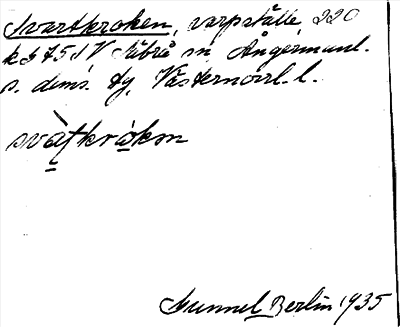 Svartkroken, varpställe, 220
k
Säbrå sn, Ångermanl.
s. dems. tg, Västernorrl. l.
svàtkròken
Gunnel Berlin 1935